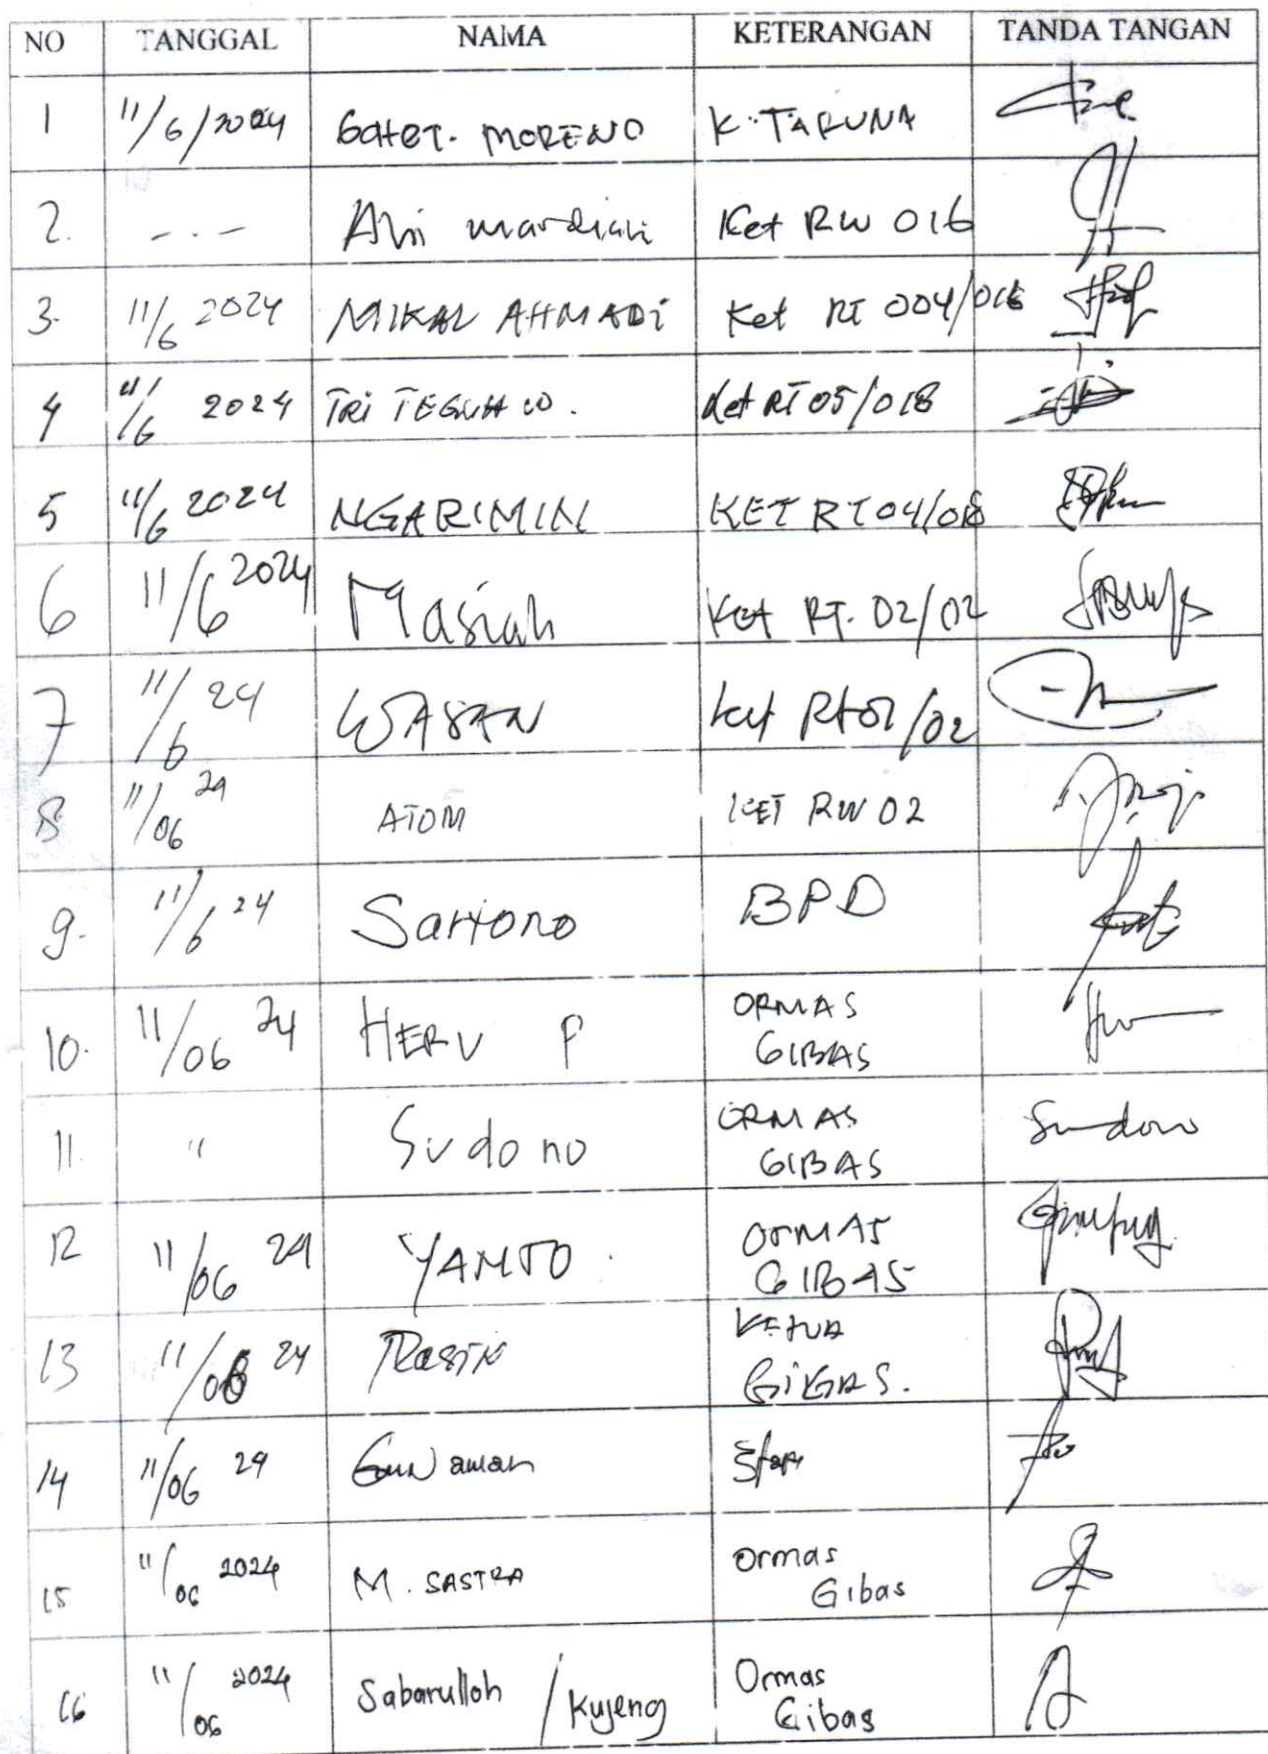 NO TANGGAL NAMA KETERANGAN TANDA TANGAN
1 11/6/2024 GATOT. MORENO K. TARUNA
2. - - - mardiah Ket RW 016
3. 11/6 2024 MIKAL AHMADi Ket RT 004/016
4 11/6 2024 TRi TEGUH W. Ket RT 05/018
5 11/6 2024 NGARIMIN KET RT 04/018
6 11/6 2024 Masiah Ket RT. 02/02
7 11/6 24 WASAN Ket Rt 01/02
8 11/06 24 ATOM KET RW 02
9. 11/6 24 Sartono BPD
10. 11/06 24 HERU P ORMAS
GIBAS
11. " Sudono ORMAS Sudono
GIBAS
12 11/06 24 YAMTO. ORMAS
GIBAS
13 11/06 24 Rasin KETUA
GiBAS.
14 11/06 24 Gunawan Staf
15 11/06 2024 M. SASTRA Ormas
Gibas
16 11/06 2024 Sabarulloh / Kujeng Ormas
Gibas